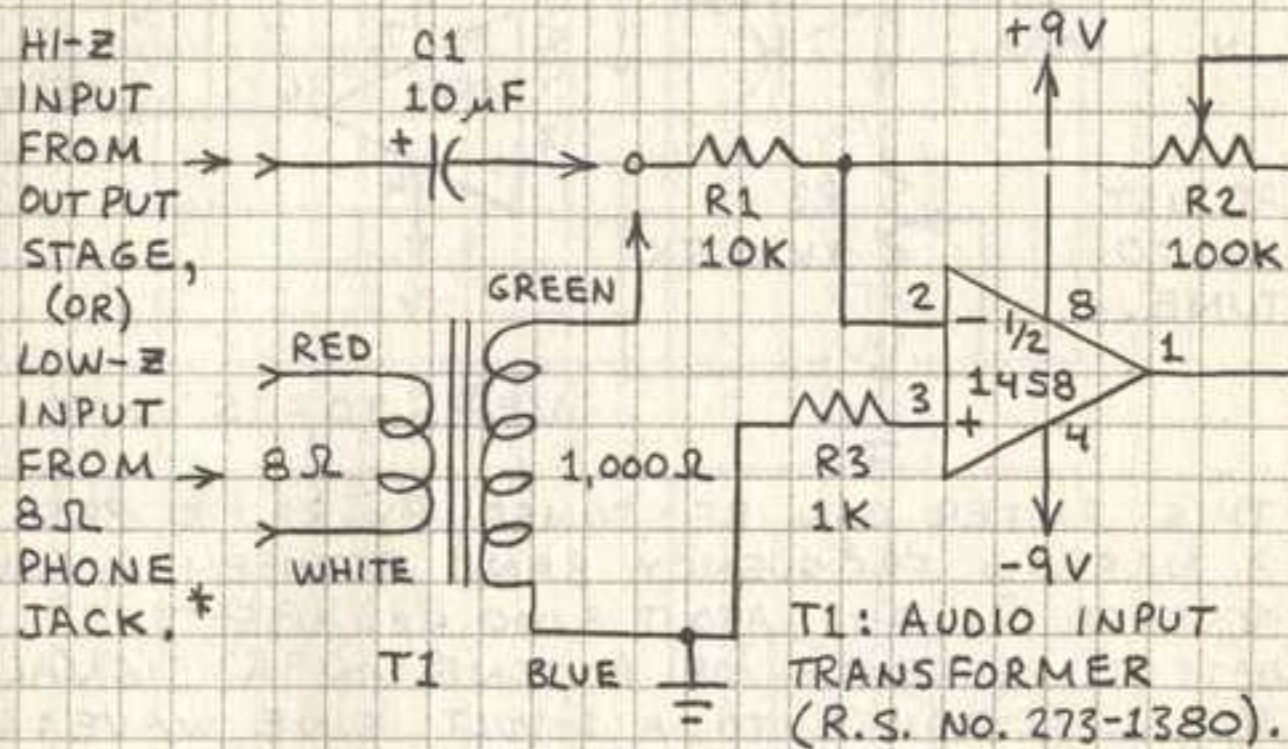 HI-Z
INPUT
FROM
OUTPUT
STAGE,
(OR)
LOW-Z
INPUT
FROM
8Ω
PHONE
JACK.*
C1
10 µF
+
+9V
R1
10K
R2
100K
GREEN
RED
8Ω
WHITE
T1
1,000Ω
BLUE
2
-
1/2
8
1
1458
3
+
4
R3
1K
-9V
T1: AUDIO INPUT
TRANSFORMER
(R.S. NO. 273-1380).